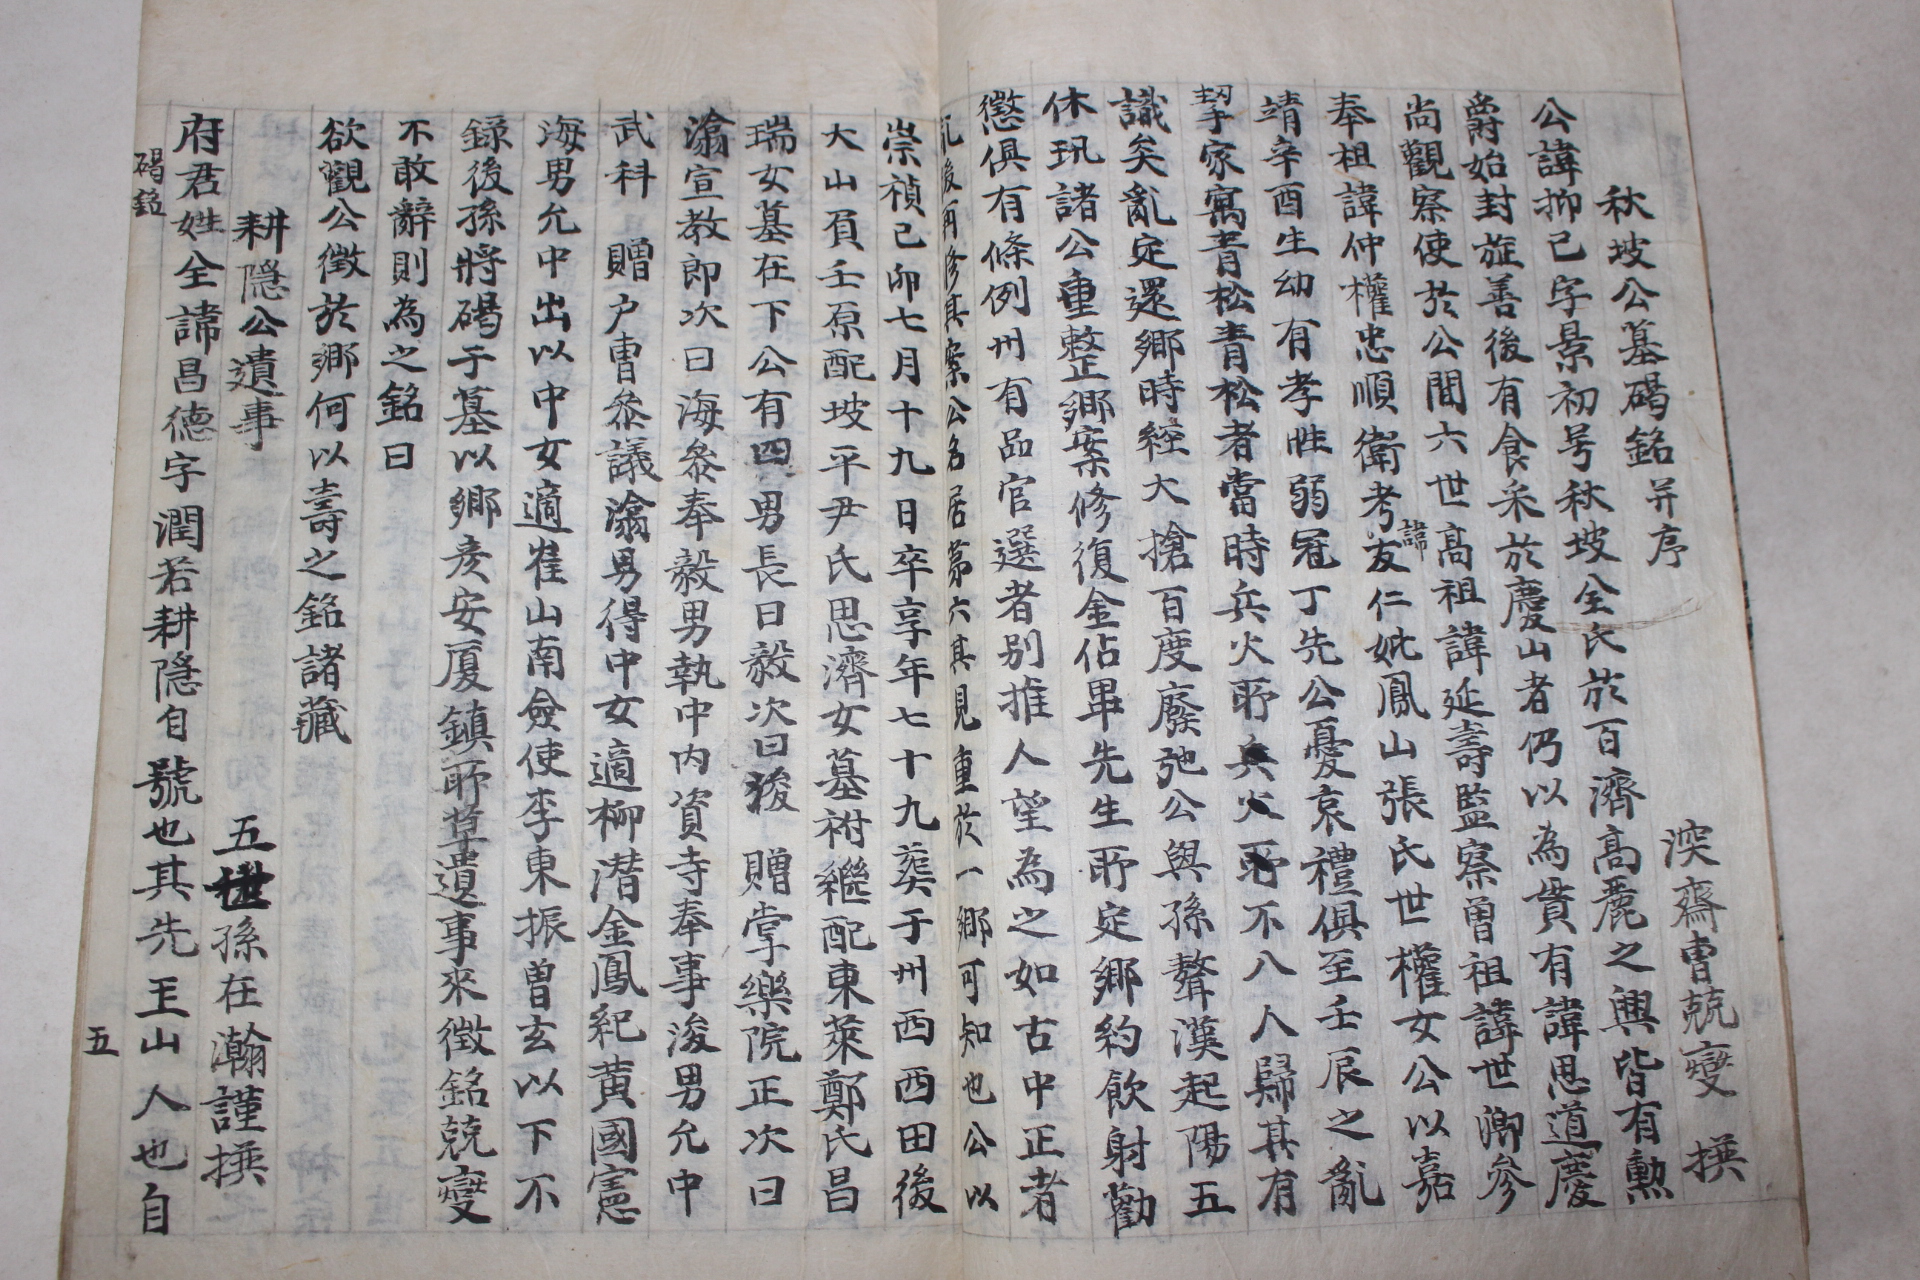 秋坡公墓碣銘并序
深齋曺兢燮 撰
公諱抑己字景初号秋坡全氏於百濟高麗之興皆有勲
爵始封旌善後有食采於慶山者仍以為貫有諱思道慶
尚觀察使於公間六世高祖諱延壽監察曾祖諱世卿參
奉祖諱仲權忠順衛考諱友仁妣鳳山張氏世權女公以嘉
靖辛酉生幼有孝性弱冠丁先公憂哀禮俱至壬辰之亂
挈家寓青松青松者當時兵火所不入人歸其有
識矣亂定還鄉時經大搶百度廢弛公與孫聱漢起陽五
休玑諸公重整鄉案修復金佔畢先生所定鄉約飲射勸
懲俱有條例州有品官選者别推人望為之如古中正者
亂後再修其案公名居第六其見重於一鄉可知也公以
崇禎己卯七月十九日卒享年七十九葬于州西西田後
大山負壬原配坡平尹氏思濟女墓祔繼配東萊鄭氏昌
瑞女墓在下公有四男長曰毅次曰後 贈掌樂院正次曰
滃宣教郎次曰海叅奉毅男執中内資寺奉事浚男允中
武科 贈户曹叅議滃男得中女適柳潜金鳳紀黄國憲
海男允中出以中女適崔山南僉使李東振曾玄以下不
録後孫將碣于墓以鄉彦安厦鎮所草遺事來徴銘兢燮
不敢辭則為之銘曰
欲觀公徴於鄉何以壽之銘諸藏
耕隠公遺事
五世孫在瀚謹撰
府君姓全諱昌德字潤若耕隠自號也其先王山人也自
碣銘
五